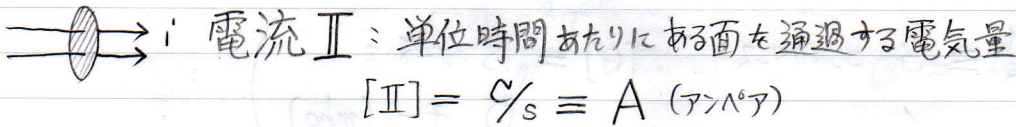 i 電流 I : 単位時間あたりにある面を通過する電気量
[I] = C/s ≡ A (アンペア)